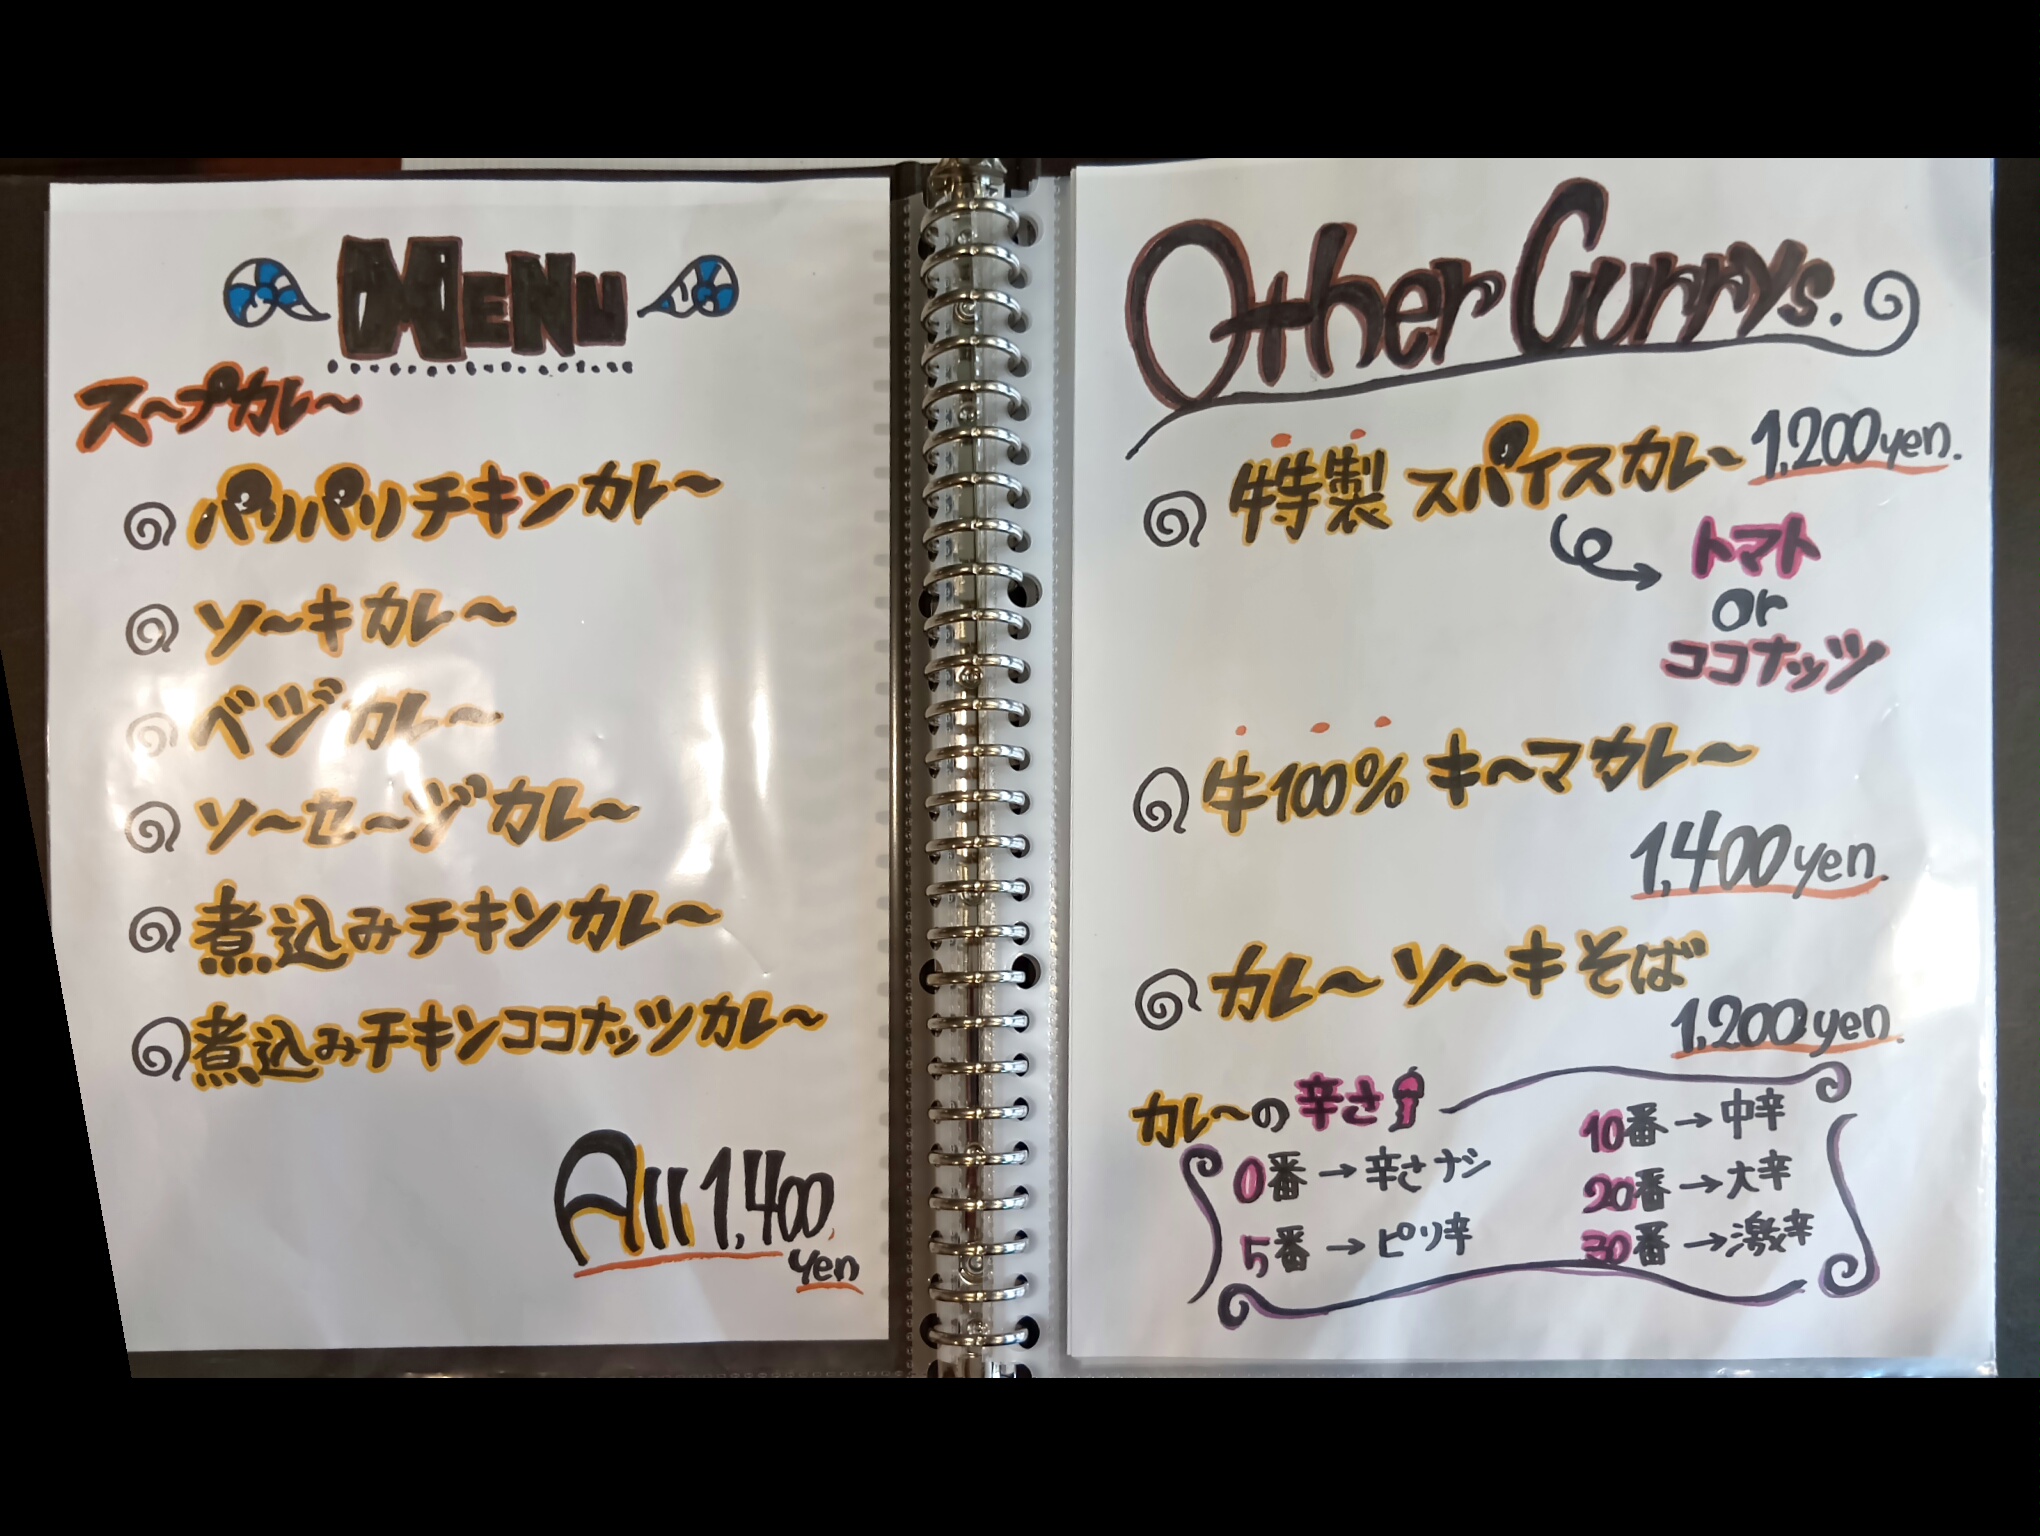 MENU
スープカレー
パリパリチキンカレー
ソーキカレー
ベジカレー
ソーセージカレー
煮込みチキンカレー
煮込みチキンココナッツカレー
All 1,400
yen
Other Currys.
特製 スパイスカレー 1,200yen.
トマト
or
ココナッツ
牛100% キーマカレー
1,400yen.
カレー ソーキそば
1,200yen.
カレーの辛さ
0番→辛さナシ
5番→ピリ辛
10番→中辛
20番→大辛
30番→激辛